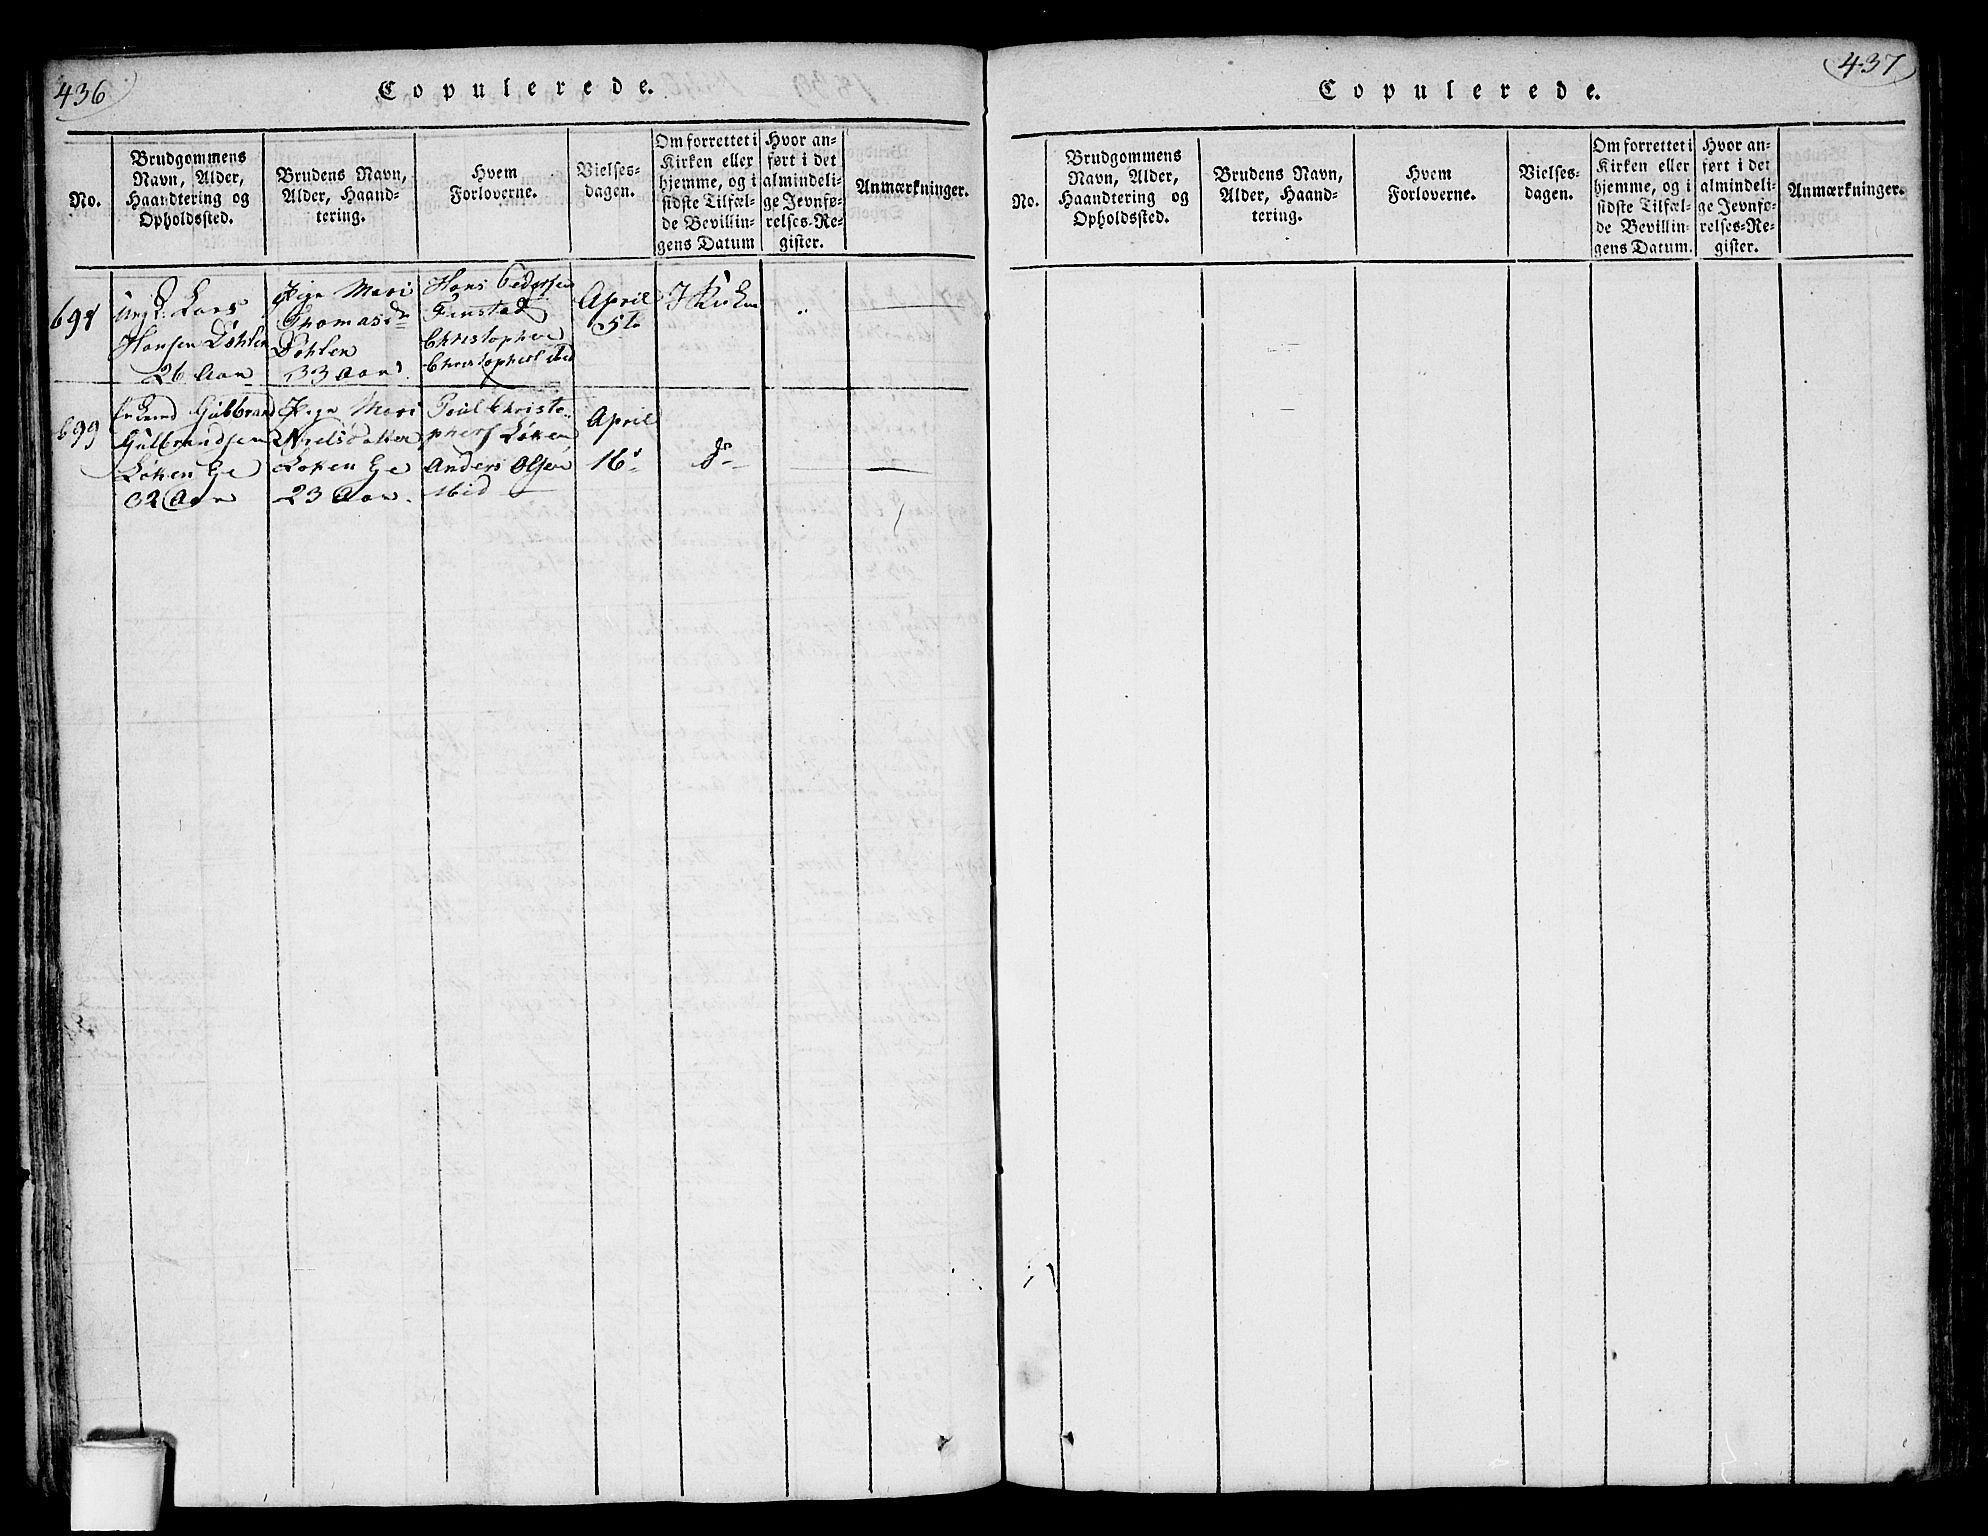 436
Copulerede.
No.
Brudgommens
Navn, Alder,
Haandtering og
Opholdssted.
Brudens Navn,
Alder, Haand-
tering.
Hvem
Forloverne.
Vielses-
dagen.
Om forrettet i
Kirken eller
hjemme, og i
sidste Tilfæl-
de Bevillin-
gens Datum
Hvor an-
ført i det
almindeli-
ge Jevnfø-
relses-Re-
gister.
Anmærkninger.
Lars
Hansen Dóhlen
26 Aar
Pige Mari
Thomasdr
Dohlen
33 Aar
Hans Pedersen
Finstad
Christopher
Christophers ibid
April
5te
I Kirken
"
699
Gulbrand
Gulbrandsen
Loken Eje
32 Aar
Pige Mari
Nielsdatter
Loken Eje
23 Aar
Poul Christo-
phers Loken
Anders Olsen
ibid
April
16
do
437
Copulerede.
No.
Brudgommens
Navn, Alder,
Haandtering og
Opholdssted.
Brudens Navn,
Alder, Haand-
tering.
Hvem
Forloverne.
Vielses-
dagen.
Om forrettet i
Kirken eller
hjemme, og i
sidste Tilfæl-
de Bevillin-
gens Datum.
Hvor an-
ført i det
almindeli-
ge Jevnfø-
relses-Re-
gister.
Anmærkninger.